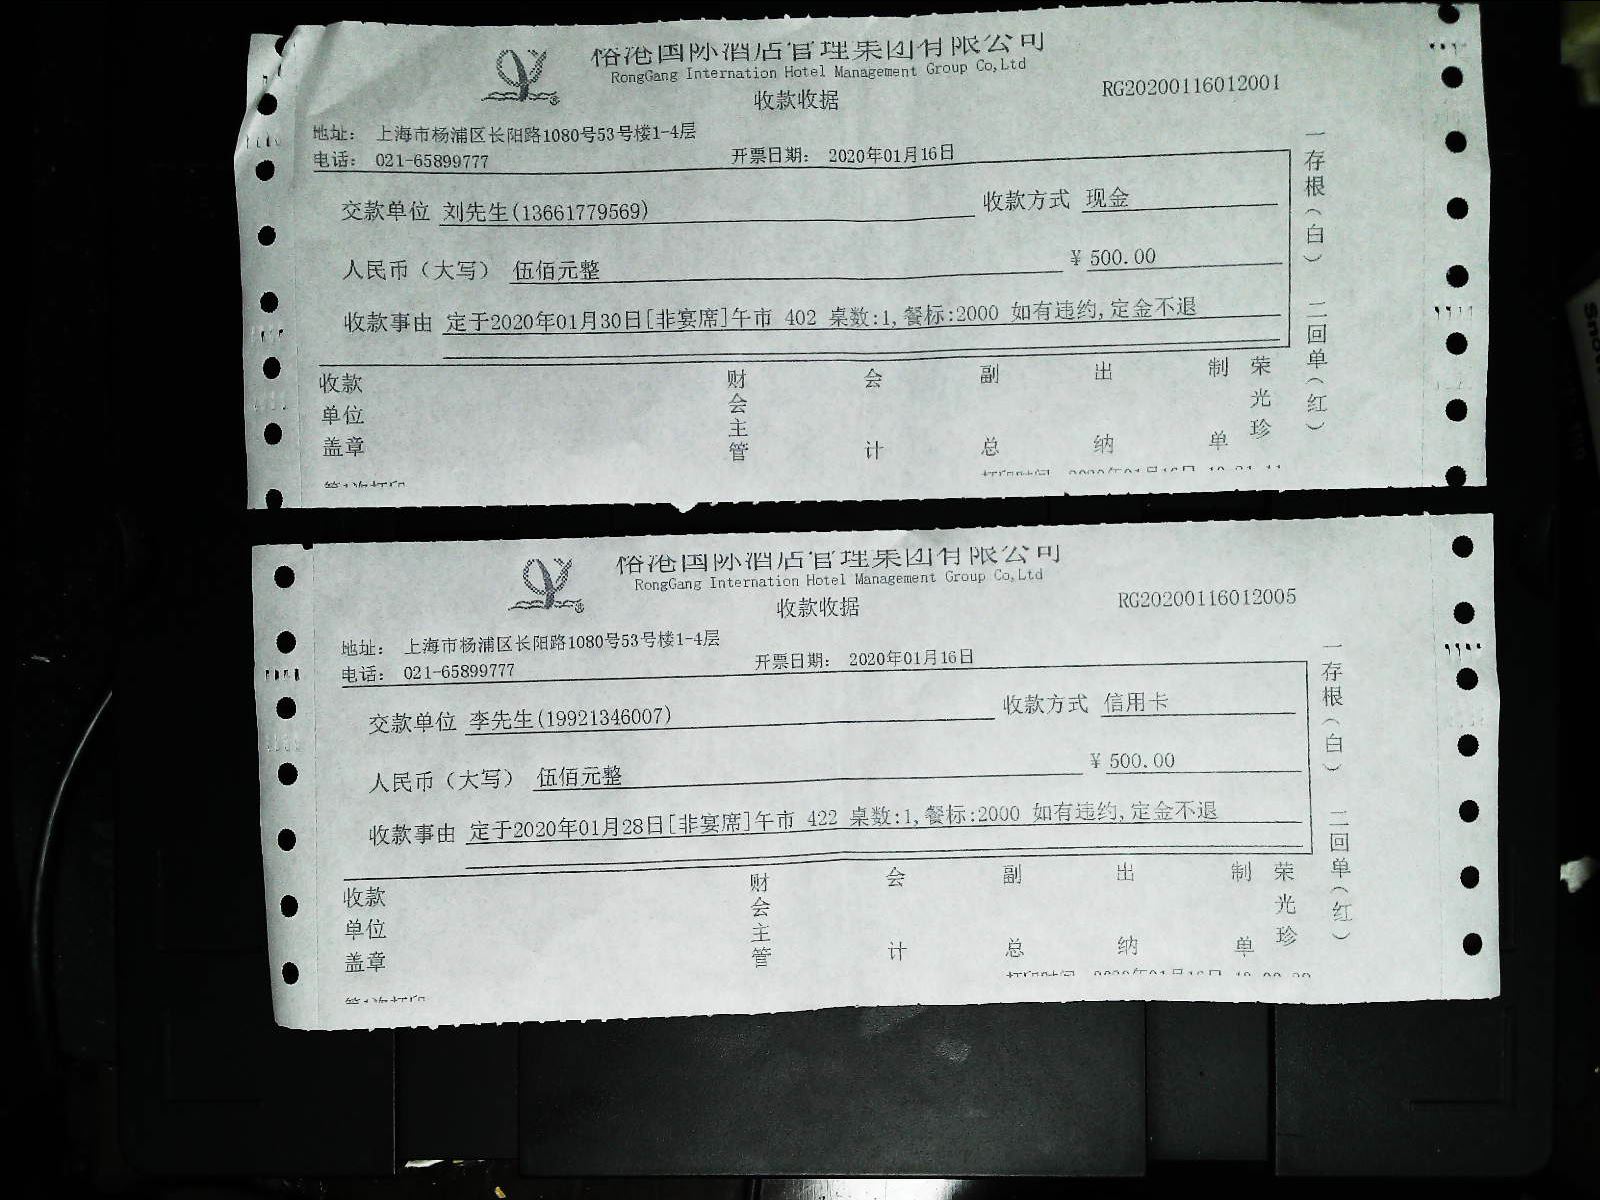 俗港国际酒店管理集团有限公司
RongGang Internation Hotel Management Group Co,Ltd
收款收据
RG20200116012001
地址: 上海市杨浦区长阳路1080号53号楼1-4层
电话: 021-65899777 开票日期: 2020年01月16日
交款单位 刘先生(13661779569) 收款方式 现金
人民币(大写) 伍佰元整 ¥ 500.00
收款事由 定于2020年01月30日[非宴席]午市 402 桌数:1,餐标:2000 如有违约,定金不退
收款单位盖章 财会主管 会计 副总 出纳 制单 荣光珍
一存根(白) 二回单(红)
俗港国际酒店管理集团有限公司
RongGang Internation Hotel Management Group Co,Ltd
收款收据
RG20200116012005
地址: 上海市杨浦区长阳路1080号53号楼1-4层
电话: 021-65899777 开票日期: 2020年01月16日
交款单位 李先生(19921346007) 收款方式 信用卡
人民币(大写) 伍佰元整 ¥ 500.00
收款事由 定于2020年01月28日[非宴席]午市 422 桌数:1,餐标:2000 如有违约,定金不退
收款单位盖章 财会主管 会计 副总 出纳 制单 荣光珍
一存根(白) 二回单(红)